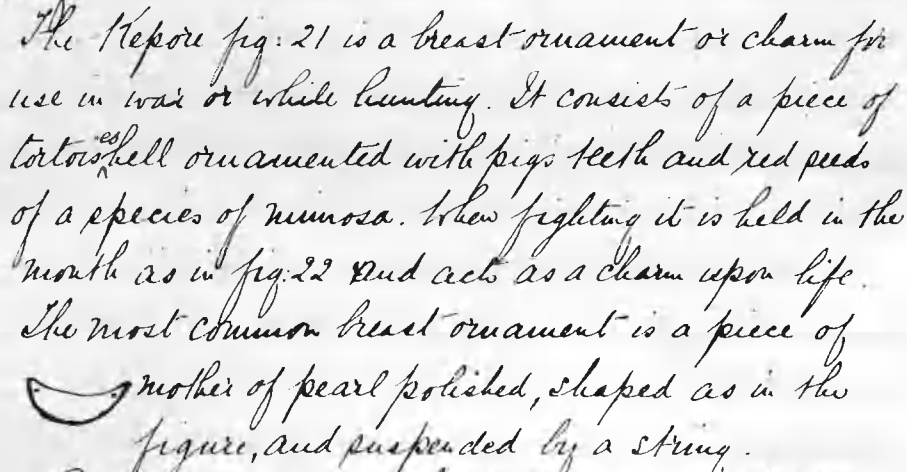 The Kepore fig: 21 is a breast ornament or charm for
use in war or while hunting. It consists of a piece of
tortoiseshell ornamented with pigs teeth and red seeds
of a species of mimosa. When fighting it is held in the
mouth as in fig: 22 and acts as a charm upon life.
The most common breast ornament is a piece of
mother of pearl polished, shaped as in the
figure, and suspended by a string.